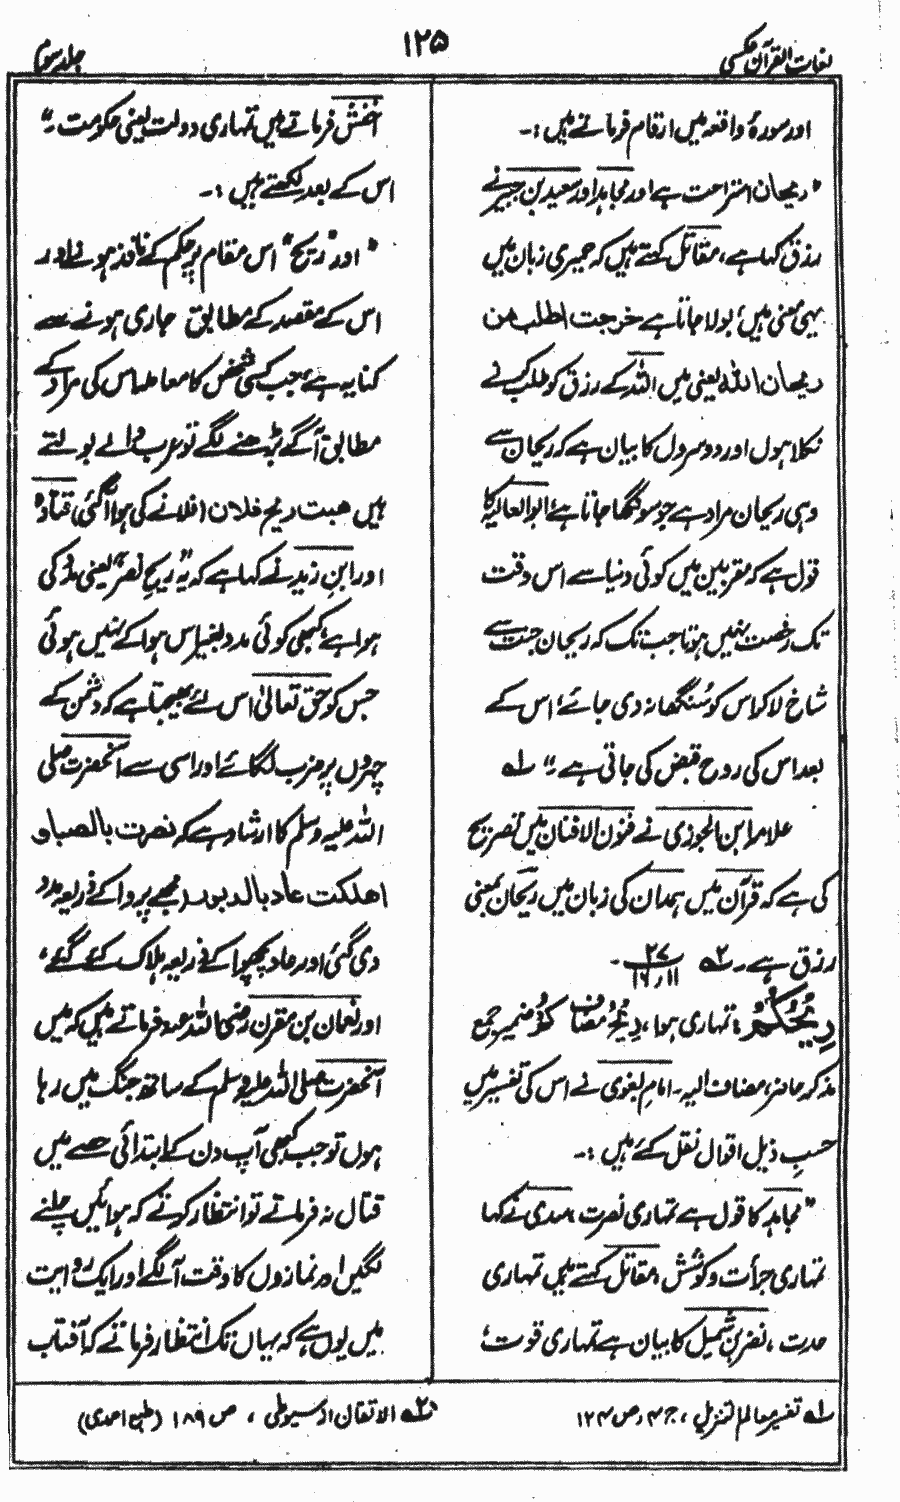 لغات القرآن عکسی
۱۲۵
جلد سوم
اور سورۂ واقعہ میں ارقام فرماتے ہیں :۔
"ریحان استراحت ہے اور مجاہد اور سعید بن جبیر نے
رزق کہا ہے، مقاتل کہتے ہیں کہ حمیری زبان میں
یہی معنی ہیں، بولا جاتا ہے خرجت اطلب من
ریحان اللہ یعنی میں اللہ کے رزق کو طلب کرنے
نکلا ہوں اور دوسروں کا بیان ہے کہ ریحان سے
وہی ریحان مراد ہے جو سونگھا جاتا ہے، ابوالعالیہ کا
قول ہے کہ مقربین میں کوئی دنیا سے اس وقت
تک رخصت نہیں ہوتا جب تک کہ ریحان جنت سے
شاخ لا کر اس کو سُنگھا نہ دی جائے، اس کے
بعد اس کی روح قبض کی جاتی ہے۔" لہ
علامہ ابن الجوزی نے فنون الافنان میں تصریح
کی ہے کہ قرآن میں ہمدان کی زبان میں ریحان بمعنی
رزق ہے۔ ۲ہ ۲۷ ۔
۱۱ ۱۶
رِیْحُکُمْ: تمہاری ہوا، رِیْحُ مضاف کُمْ ضمیر جمع
مذکر حاضر، مضاف الیہ۔ امام بغوی نے اس کی تفسیر میں
حسبِ ذیل اقوال نقل کئے ہیں :۔
"مجاہد کا قول ہے تمہاری نصرت، سدی نے کہا
تمہاری جرأت و کوشش، مقاتل کہتے ہیں تمہاری
حدت، نضر بن شمیل کا بیان ہے تمہاری قوت،
اخفش فرماتے ہیں تمہاری دولت یعنی حکومت۔"
اس کے بعد لکھتے ہیں :۔
"اور "ریح" اس مقام پر حکم کے نافذ ہونے اور
اس کے مقصد کے مطابق جاری ہونے سے
کنایہ ہے، جب کسی شخص کا معاملہ اس کی مراد کے
مطابق آگے بڑھنے لگے تو عرب والے بولتے
ہیں ھبت ریح فلان (فلانے کی ہوا آ گئی) قتادہ
اور ابن زید نے کہا ہے کہ یہ "ریح نصر" یعنی مدد کی
ہوا ہے، کبھی کوئی مدد بغیر اس ہوا کے نہیں ہوئی
جس کو حق تعالیٰ اس لئے بھیجتا ہے کہ دشمن کے
چہروں پر ضرب لگائے اور اسی سے آنحضرت صلی
اللہ علیہ وسلم کا ارشاد ہے کہ نصرت بالصبا و
اھلکت عاد بالدبور (مجھے پروا کے ذریعہ مدد
دی گئی اور عاد پچھوا کے ذریعہ ہلاک کئے گئے،
اور نعمان بن مقرن رضی اللہ عنہ فرماتے ہیں کہ میں
آنحضرت صلی اللہ علیہ وسلم کے ساتھ جنگ میں رہا
ہوں تو جب کبھی آپ دن کے ابتدائی حصے میں
قتال نہ فرماتے تو انتظار کرتے کہ ہوائیں چلنے
لگیں اور نمازوں کا وقت آ لگے اور ایک روایت
میں یوں ہے کہ یہاں تک انتظار فرماتے کہ آفتاب
لہ تفسیر معالم التنزیل، ج ۳، ص ۱۲۴
۲ہ الاتقان از سیوطی، ص ۱۸۹ (طبع احمدی)